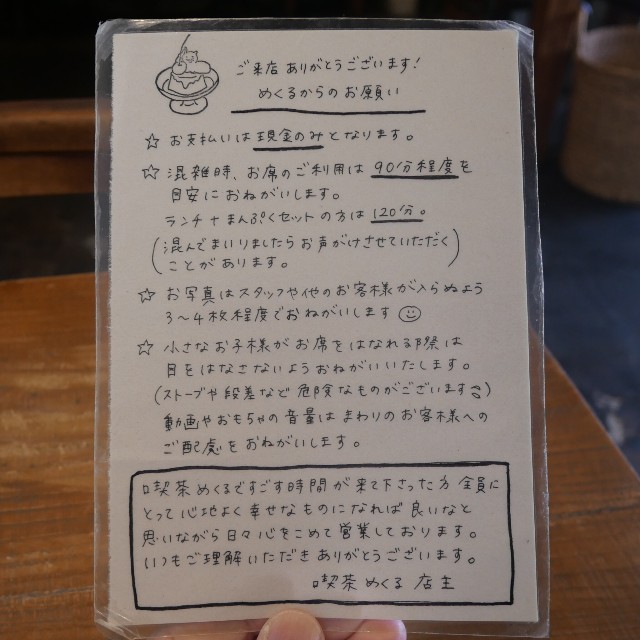 ご来店ありがとうございます!
めくるからのお願い
☆ お支払いは現金のみとなります。
☆ 混雑時、お席のご利用は 90分程度を
目安におねがいします。
ランチ+まんぷくセットの方は120分。
(混んでまいりましたらお声がけさせていただく
ことがあります。)
☆ お写真はスタッフや他のお客様が入らぬよう
3〜4枚程度でおねがいします☺
☆ 小さなお子様がお席をはなれる際は
目をはなさないようおねがいいたします。
(ストーブや段差など危険なものがございます)
動画やおもちゃの音量はまわりのお客様への
ご配慮をおねがいします。
喫茶めくるですごす時間が来て下さった方全員に
とって心地よく幸せなものになれば良いなと
思いながら日々心をこめて営業しております。
いつもご理解いただきありがとうございます。
喫茶めくる 店主